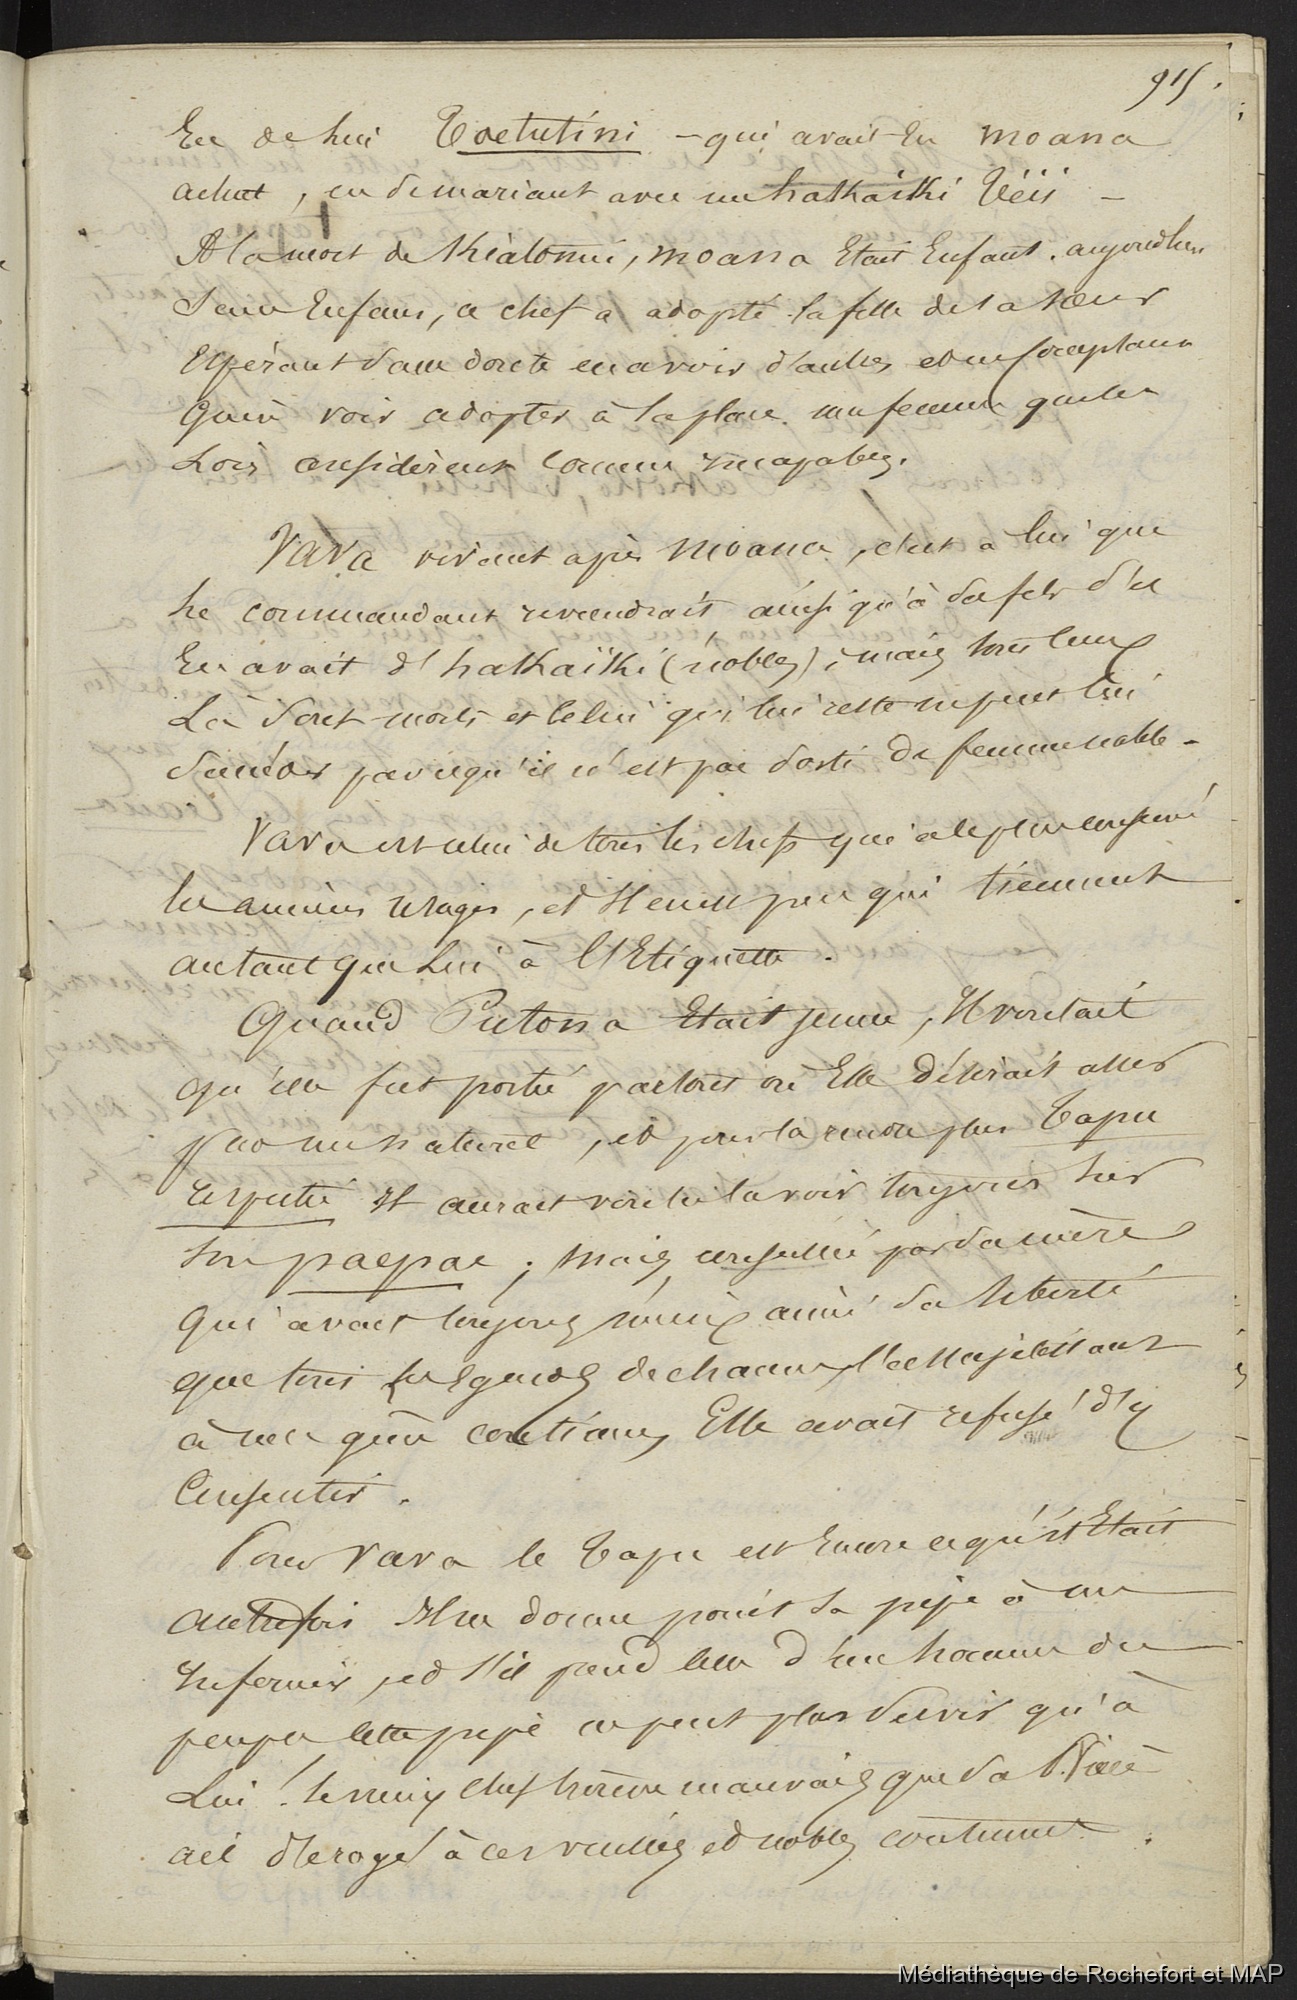 915.
Eu de lui Toetutini - qui avait Eu moana
, en se mariant avec un hakaiki Teii -
A la mort de Kiatonui, moana Etait Enfant. aujourd'hui
sans Enfans, ce chef a adopté la fille de sa sœur
Espérant sans doute en avoir d'autres et ne forceplaira
qu'à voir adopter à sa place une femme que les
Lois considèrent comme incapables.
Vava vivant après moana, c'est à lui que
le commandant reviendrait ainsi qu'à ses fils s'il
En avait d'hakaïki (nobles), mais tous ceux
Là sont morts et celui qui lui reste ne peut lui
succéder parcequ'il n'est pas sorti de femme noble -
Vava est celui de tous les chefs qui a le plus conservé
les anciens usages, et Il en est peu qui tiennent
autant que Lui à l'Etiquette.
Quand Putona Etait jeune, Il voulait
qu'elle fut portée partout où Elle désirait aller
par un naturel, et pour la rendre plus tapu
respectée Il aurait voulu la voir toujours sur
son paepae; mais conseillée par sa mère
qui avait toujours mieux aimé sa liberté
que tous les égards de chacun l'assujettissant
à une gêne continue, Elle avait refusé d'y
Consentir.
Pour Vava le tapu est Encore ce qu'il Etait
autrefois Il ne donne point sa pipe à un
Inférieur, et s'il prend celle d'un homme du
peuple cette pipe ne peut plus servir qu'à
Lui! le vieux chef trouve mauvais que sa Nièce
ait dérogé à ces vieilles et nobles coutumes.
Médiathèque de Rochefort et MAP